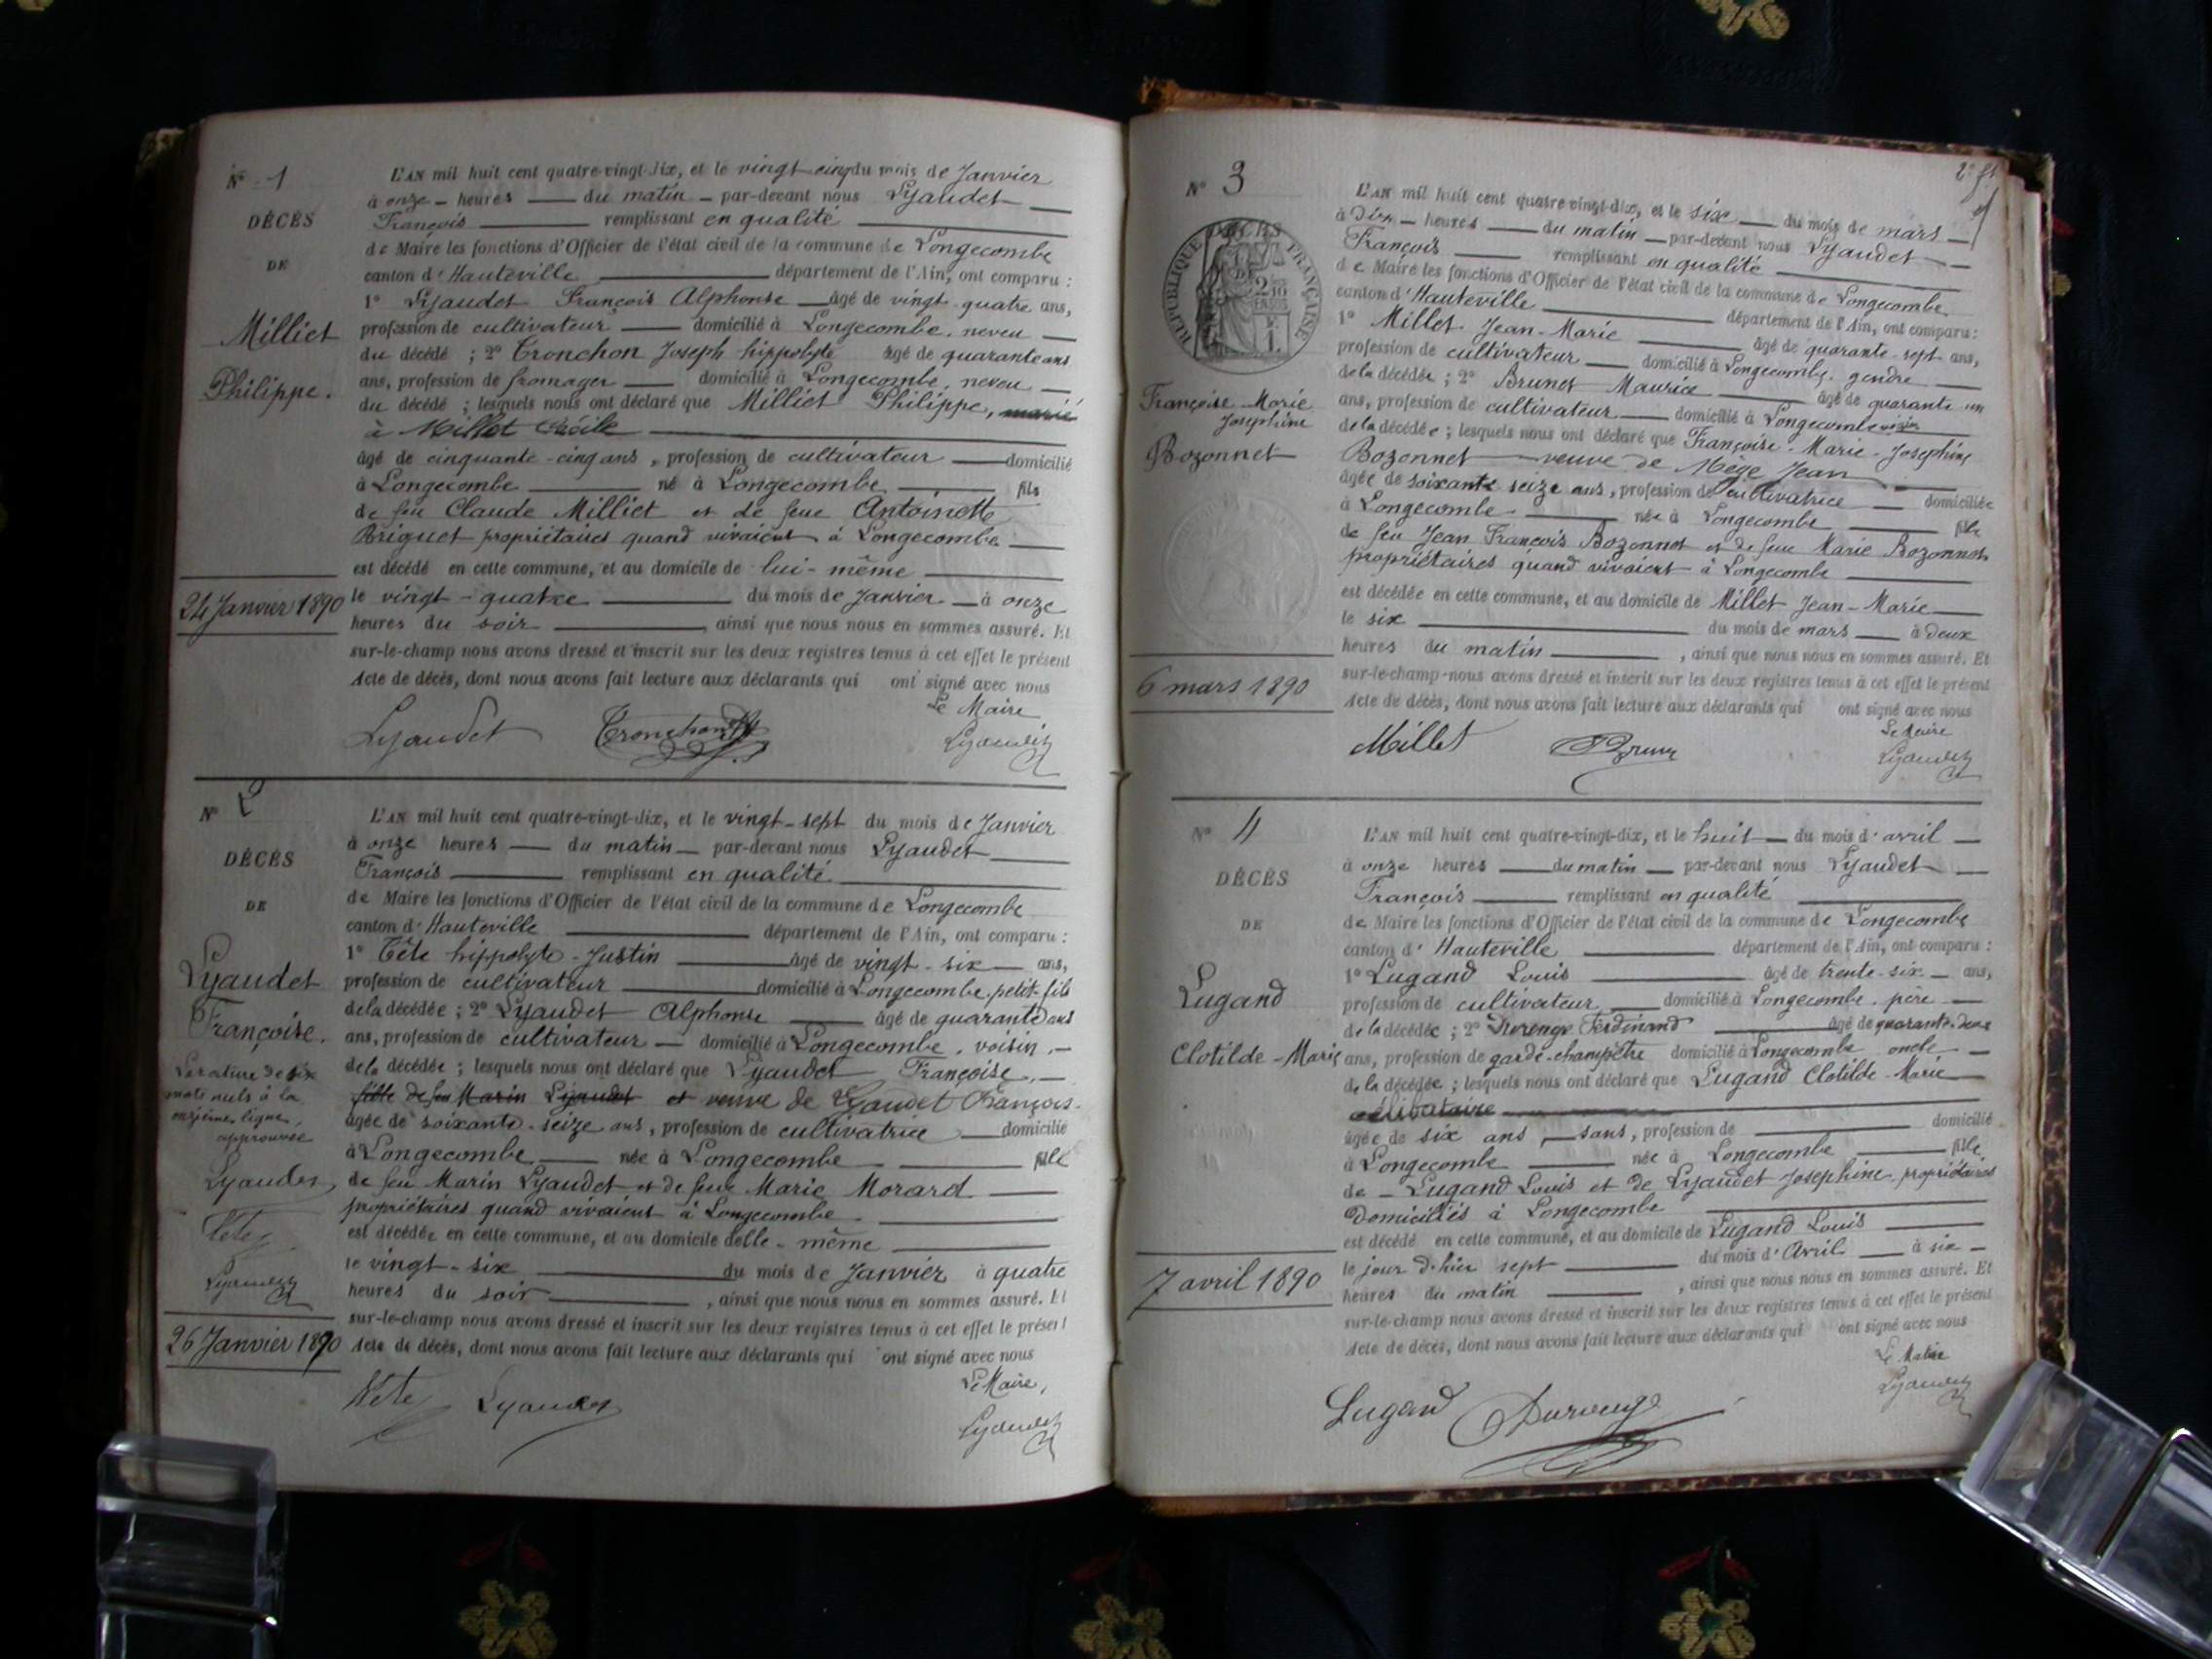 N° 1
DÉCÈS
DE
Milliet
Philippe.
24 Janvier 1890
L'AN mil huit cent quatre-vingt-dix, et le vingt cinq du mois de Janvier
à onze heures du matin par-devant nous Lyaudet
François remplissant en qualité
de Maire les fonctions d'Officier de l'état civil de la commune de Longecombe
canton d'Hauteville département de l'Ain, ont comparu :
1° Lyaudet François Alphonse âgé de vingt-quatre ans,
profession de cultivateur domicilié à Longecombe, neveu
du décédé ; 2° Tronchon Joseph hippolyte âgé de quarante ans
ans, profession de fromager domicilié à Longecombe, neveu
du décédé ; lesquels nous ont déclaré que Milliet Philippe, marié
à Millet
âgé de cinquante-cinq ans, profession de cultivateur domicilié
à Longecombe né à Longecombe fils
de feu Claude Milliet et de feue Antoinette
Briguet propriétaires quand vivaient à Longecombe
est décédé en cette commune, et au domicile de lui-même
le vingt-quatre du mois de Janvier à onze
heures du soir, ainsi que nous nous en sommes assuré. Et
sur-le-champ nous avons dressé et inscrit sur les deux registres tenus à cet effet le présent
Acte de décès, dont nous avons fait lecture aux déclarants qui ont signé avec nous
Le Maire
Lyaudet Tronchon Lyaudet
N° 2
DÉCÈS
DE
Lyaudet
Françoise.
La rature de six
mots nuls à la
ligne,
approuvée
Lyaudet
Tête
Lyaudet
26 Janvier 1890
L'AN mil huit cent quatre-vingt-dix, et le vingt-sept du mois de Janvier
à onze heures du matin par-devant nous Lyaudet
François remplissant en qualité
de Maire les fonctions d'Officier de l'état civil de la commune de Longecombe
canton d'Hauteville département de l'Ain, ont comparu :
1° Tête hippolyte-Justin âgé de vingt-six ans,
profession de cultivateur domicilié à Longecombe, petit-fils
de la décédée ; 2° Lyaudet Alphonse âgé de quarante ans
ans, profession de cultivateur domicilié à Longecombe, voisin,
de la décédée ; lesquels nous ont déclaré que Lyaudet Françoise,
fille de feu Marin Lyaudet et veuve de Lyaudet François.
âgée de soixante-seize ans, profession de cultivatrice domicilié
à Longecombe née à Longecombe fille
de feu Marin Lyaudet et de feue Marie Morard
propriétaires quand vivaient à Longecombe
est décédée en cette commune, et au domicile d'elle-même
le vingt-six du mois de Janvier à quatre
heures du soir, ainsi que nous nous en sommes assuré. Et
sur-le-champ nous avons dressé et inscrit sur les deux registres tenus à cet effet le présent
Acte de décès, dont nous avons fait lecture aux déclarants qui ont signé avec nous
Le Maire,
Tête Lyaudet Lyaudet
2e ft
N° 3
DÉCÈS
DE
RÉPUBLIQUE FRANÇAISE
Françoise Marie
Josephine
Bozonnet
6 mars 1890
L'AN mil huit cent quatre-vingt-dix, et le six du mois de mars
à Dix heures du matin par-devant nous Lyaudet
François remplissant en qualité
de Maire les fonctions d'Officier de l'état civil de la commune de Longecombe
canton d'Hauteville département de l'Ain, ont comparu :
1° Millet Jean-Marie âgé de quarante-sept ans,
profession de cultivateur domicilié à Longecombe, gendre
de la décédée ; 2° Brunet Maurice âgé de quarante un
ans, profession de cultivateur domicilié à Longecombe voisin
de la décédée ; lesquels nous ont déclaré que Françoise-Marie-Josephine
Bozonnet veuve de Mège Jean
âgée de soixante seize ans, profession de cultivatrice domiciliée
à Longecombe née à Longecombe fille
de feu Jean François Bozonnet et de feue Marie Bozonnet
propriétaires quand vivaient à Longecombe
est décédée en cette commune, et au domicile de Millet Jean-Marie
le six du mois de mars à deux
heures du matin, ainsi que nous nous en sommes assuré. Et
sur-le-champ nous avons dressé et inscrit sur les deux registres tenus à cet effet le présent
Acte de décès, dont nous avons fait lecture aux déclarants qui ont signé avec nous
Le Maire
Millet Lyaudet
N° 4
DÉCÈS
DE
Lugand
Clotilde-Marie
7 avril 1890
L'AN mil huit cent quatre-vingt-dix, et le huit du mois d'avril
à onze heures du matin par-devant nous Lyaudet
François remplissant en qualité
de Maire les fonctions d'Officier de l'état civil de la commune de Longecombe
canton d'Hauteville département de l'Ain, ont comparu :
1° Lugand Louis âgé de trente-six ans,
profession de cultivateur domicilié à Longecombe, père
de la décédée ; 2° Durenge Ferdinand âgé de quarante-deux
ans, profession de garde-champêtre domicilié à Longecombe oncle
de la décédée ; lesquels nous ont déclaré que Lugand Clotilde-Marie
célibataire
âgée de six ans, sans, profession de domicilié
à Longecombe née à Longecombe fille
de Lugand Louis et de Lyaudet Josephine, propriétaires
Domiciliés à Longecombe
est décédé en cette commune, et au domicile de Lugand Louis
le jour d'hier sept du mois d'Avril à six
heures du matin, ainsi que nous nous en sommes assuré. Et
sur-le-champ nous avons dressé et inscrit sur les deux registres tenus à cet effet le présent
Acte de décès, dont nous avons fait lecture aux déclarants qui ont signé avec nous
Le Maire
Lugand Durenge Lyaudet